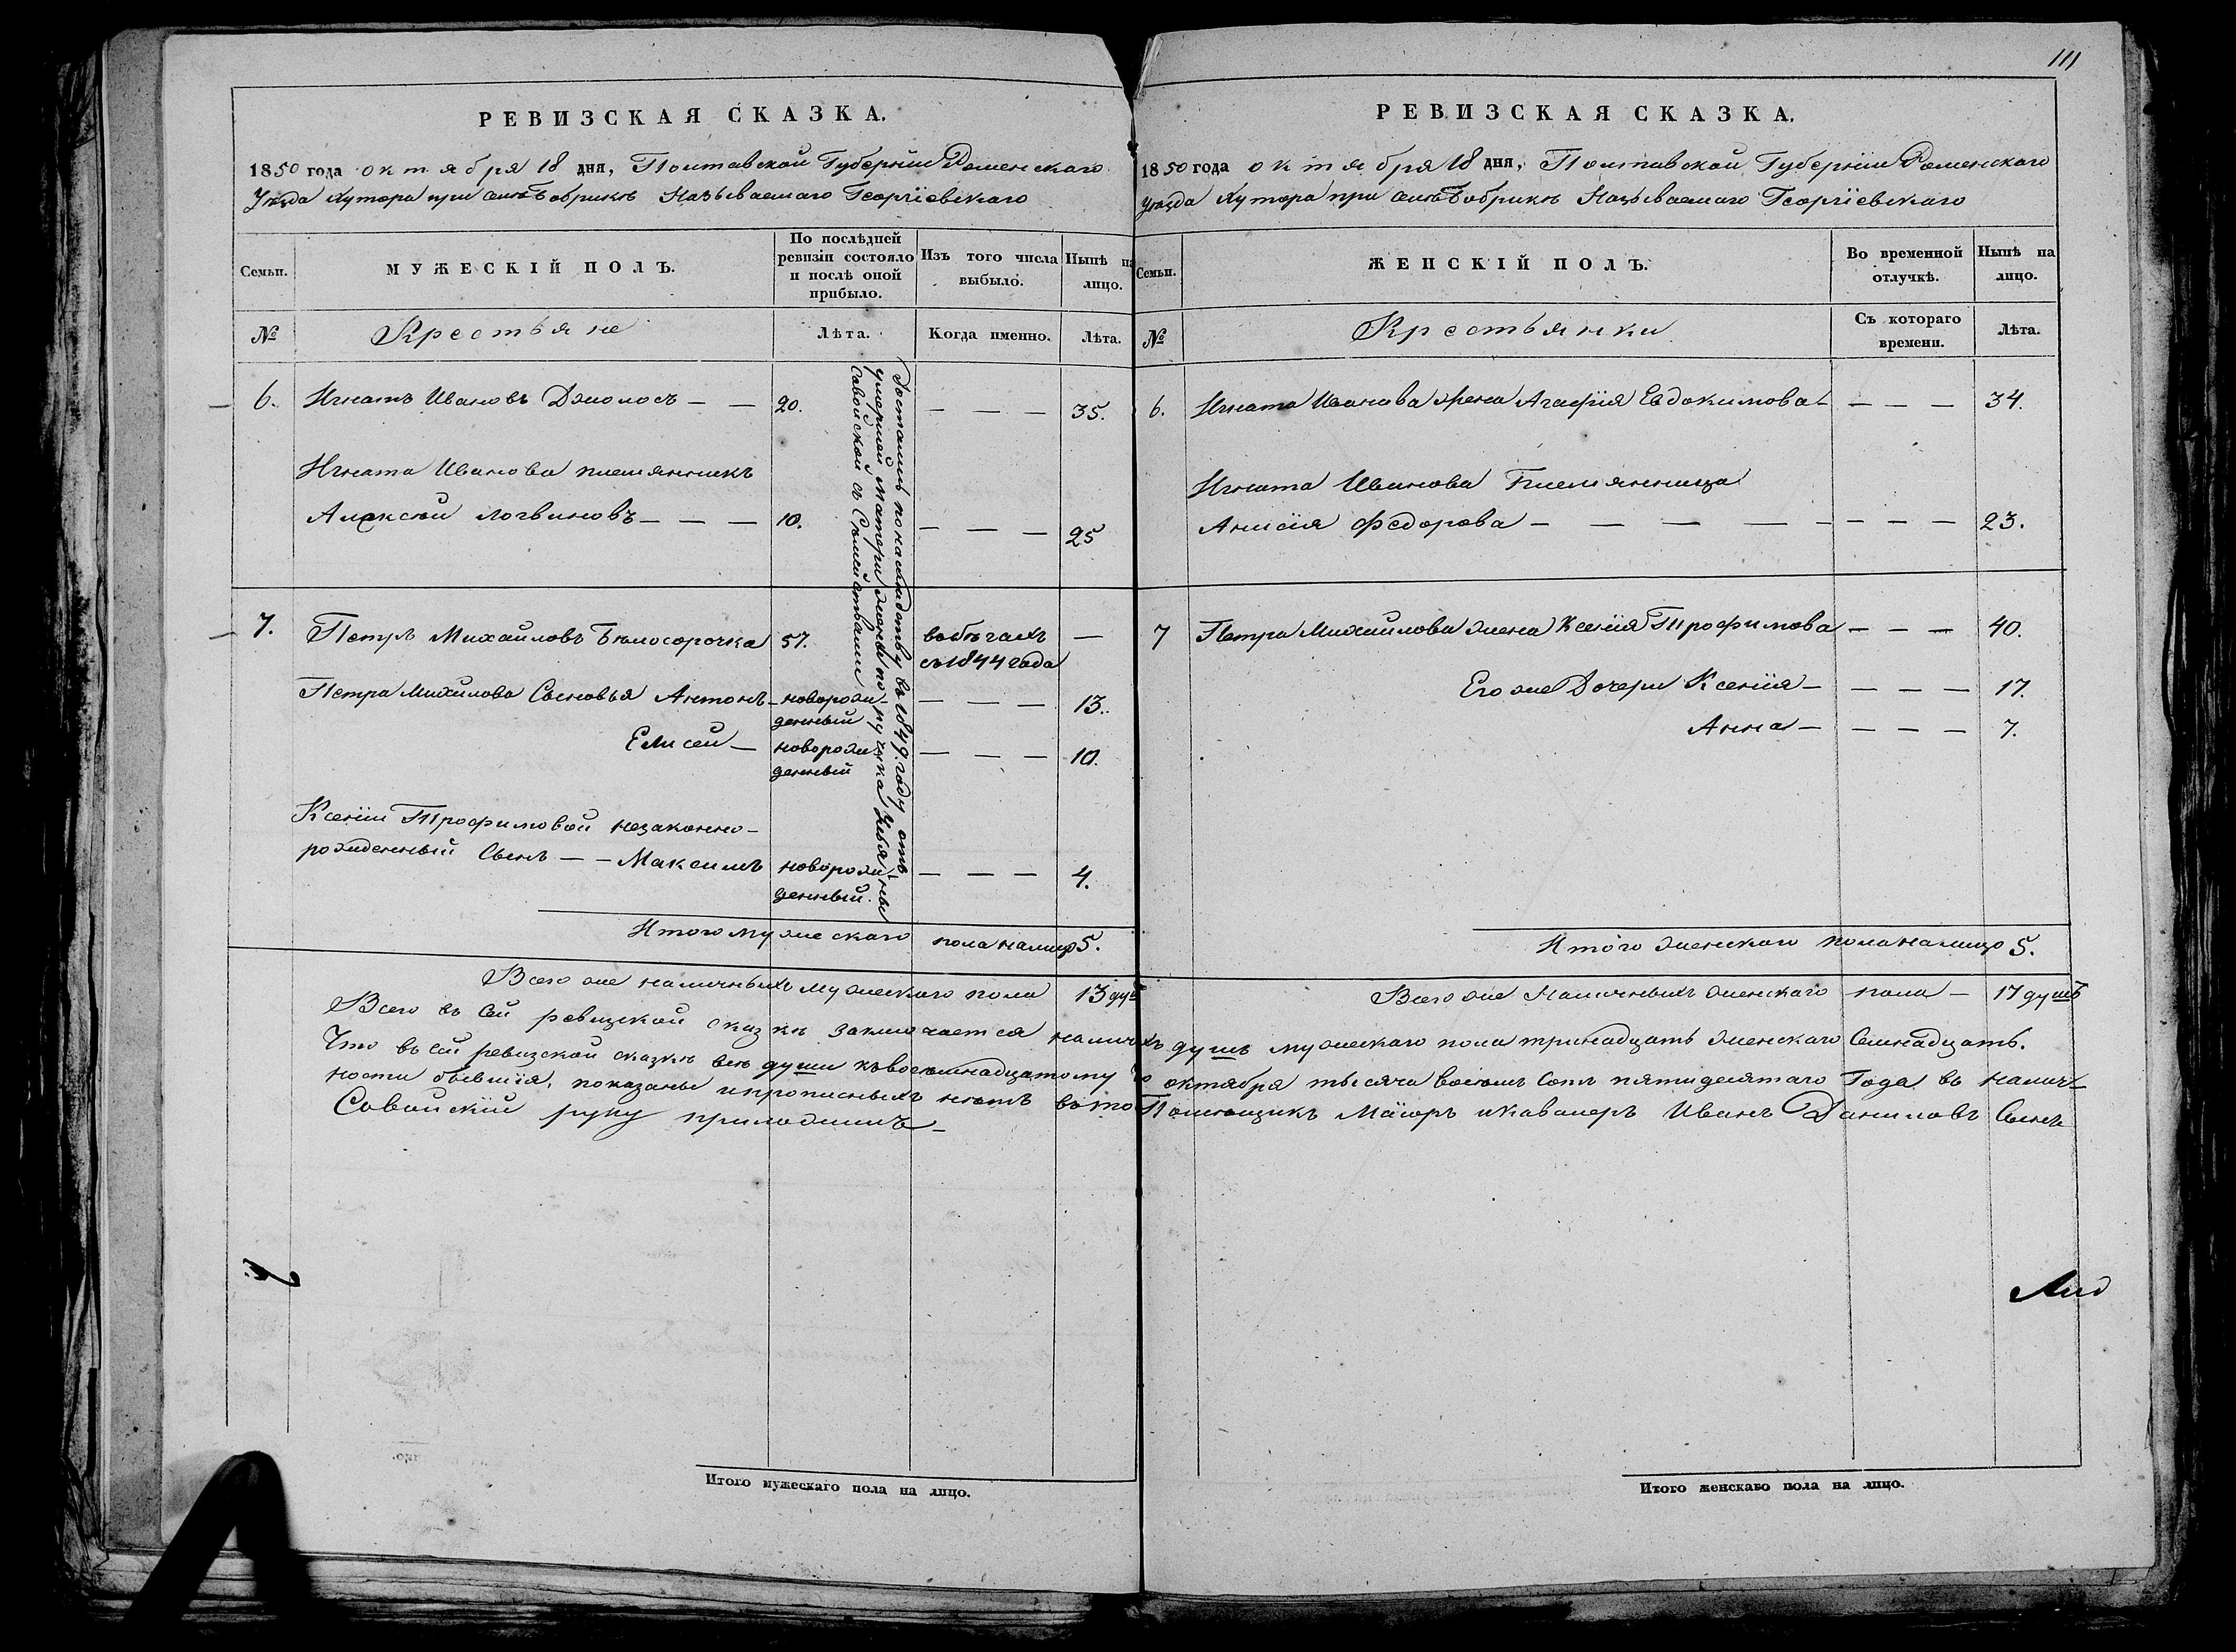 111
РЕВИЗСКАЯ СКАЗКА.
1850 года октября 18 дня, Полтавской Губерніи Роменскаго
Уѣзда Хутора при селѣ Бобрикѣ Называемаго Георгіевскаго
Семьи.
МУЖЕСКІЙ ПОЛЪ.
По послѣдней ревизіи состояло и послѣ оной прибыло.
Изъ того числа выбыло.
Нынѣ на лицо.
№
Крестьяне
Лѣта.
Когда именно.
Лѣта.
6. Игнатъ Ивановъ Джолосъ — — 20. — — — 35.
Игната Иванова племянникъ
Алексѣй Логвиновъ — — — 10. — — — 25
Достались по наслѣдству въ 1849. году отъ
умершей матери жены порутчика Ульяны
Савойской съ Семействами
7. Петръ Михайловъ Бѣлосорочка 57. въ бѣгахъ —
съ 1844 года
Петра Михайлова Сыновья Антонъ — новорож- — — — 13.
денный
Елисей — новорож- — — — 10.
денный
Ксеніи Трофимовой незаконно-
рожденный Сынъ — — Максимъ новорож- — — — 4.
денный.
Итого мужескаго пола налицо 5.
Всего же наличныхъ мужескаго пола 13 душ
РЕВИЗСКАЯ СКАЗКА.
1850 года октября 18 дня, Полтавской Губерніи Роменскаго
Уѣзда Хутора при селѣ Бобрикѣ Называемаго Георгіевскаго
Семьи.
ЖЕНСКІЙ ПОЛЪ.
Во временной отлучкѣ.
Нынѣ на лицо.
№
Крестьянки
Съ котораго времени.
Лѣта.
6. Игната Иванова жена Агафія Евдокимова — — — — 34.
Игната Иванова Племянница
Анисія Федорова — — — — — — — — 23.
7 Петра Михайлова жена Ксенія Трофимова — — — 40.
Его же Дочери Ксенія — — — — 17.
Анна — — — — 7.
Итого женскаго пола налицо 5.
Всего же Наличныхъ женскаго пола — 17 душъ
Всего въ сей ревизской сказкѣ заключается наличныхъ душъ мужескаго пола тринадцать женскаго Семнадцать.
Что въ сей ревизской сказкѣ всѣ души къ восемнадцатому октября тысяча восемь сотъ пятидесятаго Года въ налич-
ности бывшія, показаны и прописныхъ нѣтъ въ то Помѣщикъ Маіоръ и кавалеръ Иванъ Даниловъ Сынъ
Савойскій руку приложилъ —
Итого мужескаго пола на лицо.
Итого женскаго пола на лицо.